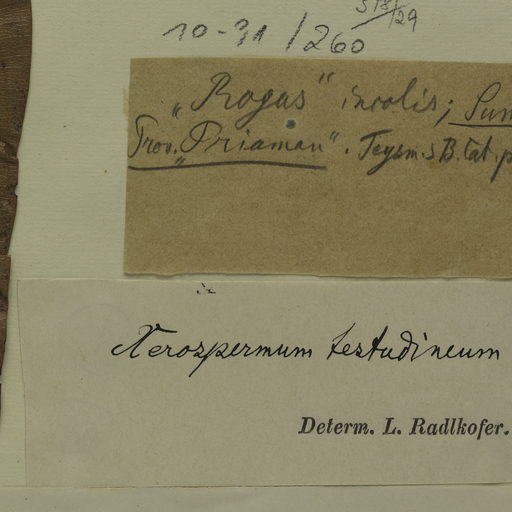 10-31/260
"Rogas" incolis; Sum
Prov. "Priaman". Teysm. & B. Cat. p
Xerospermum testudineum
Determ. L. Radlkofer.